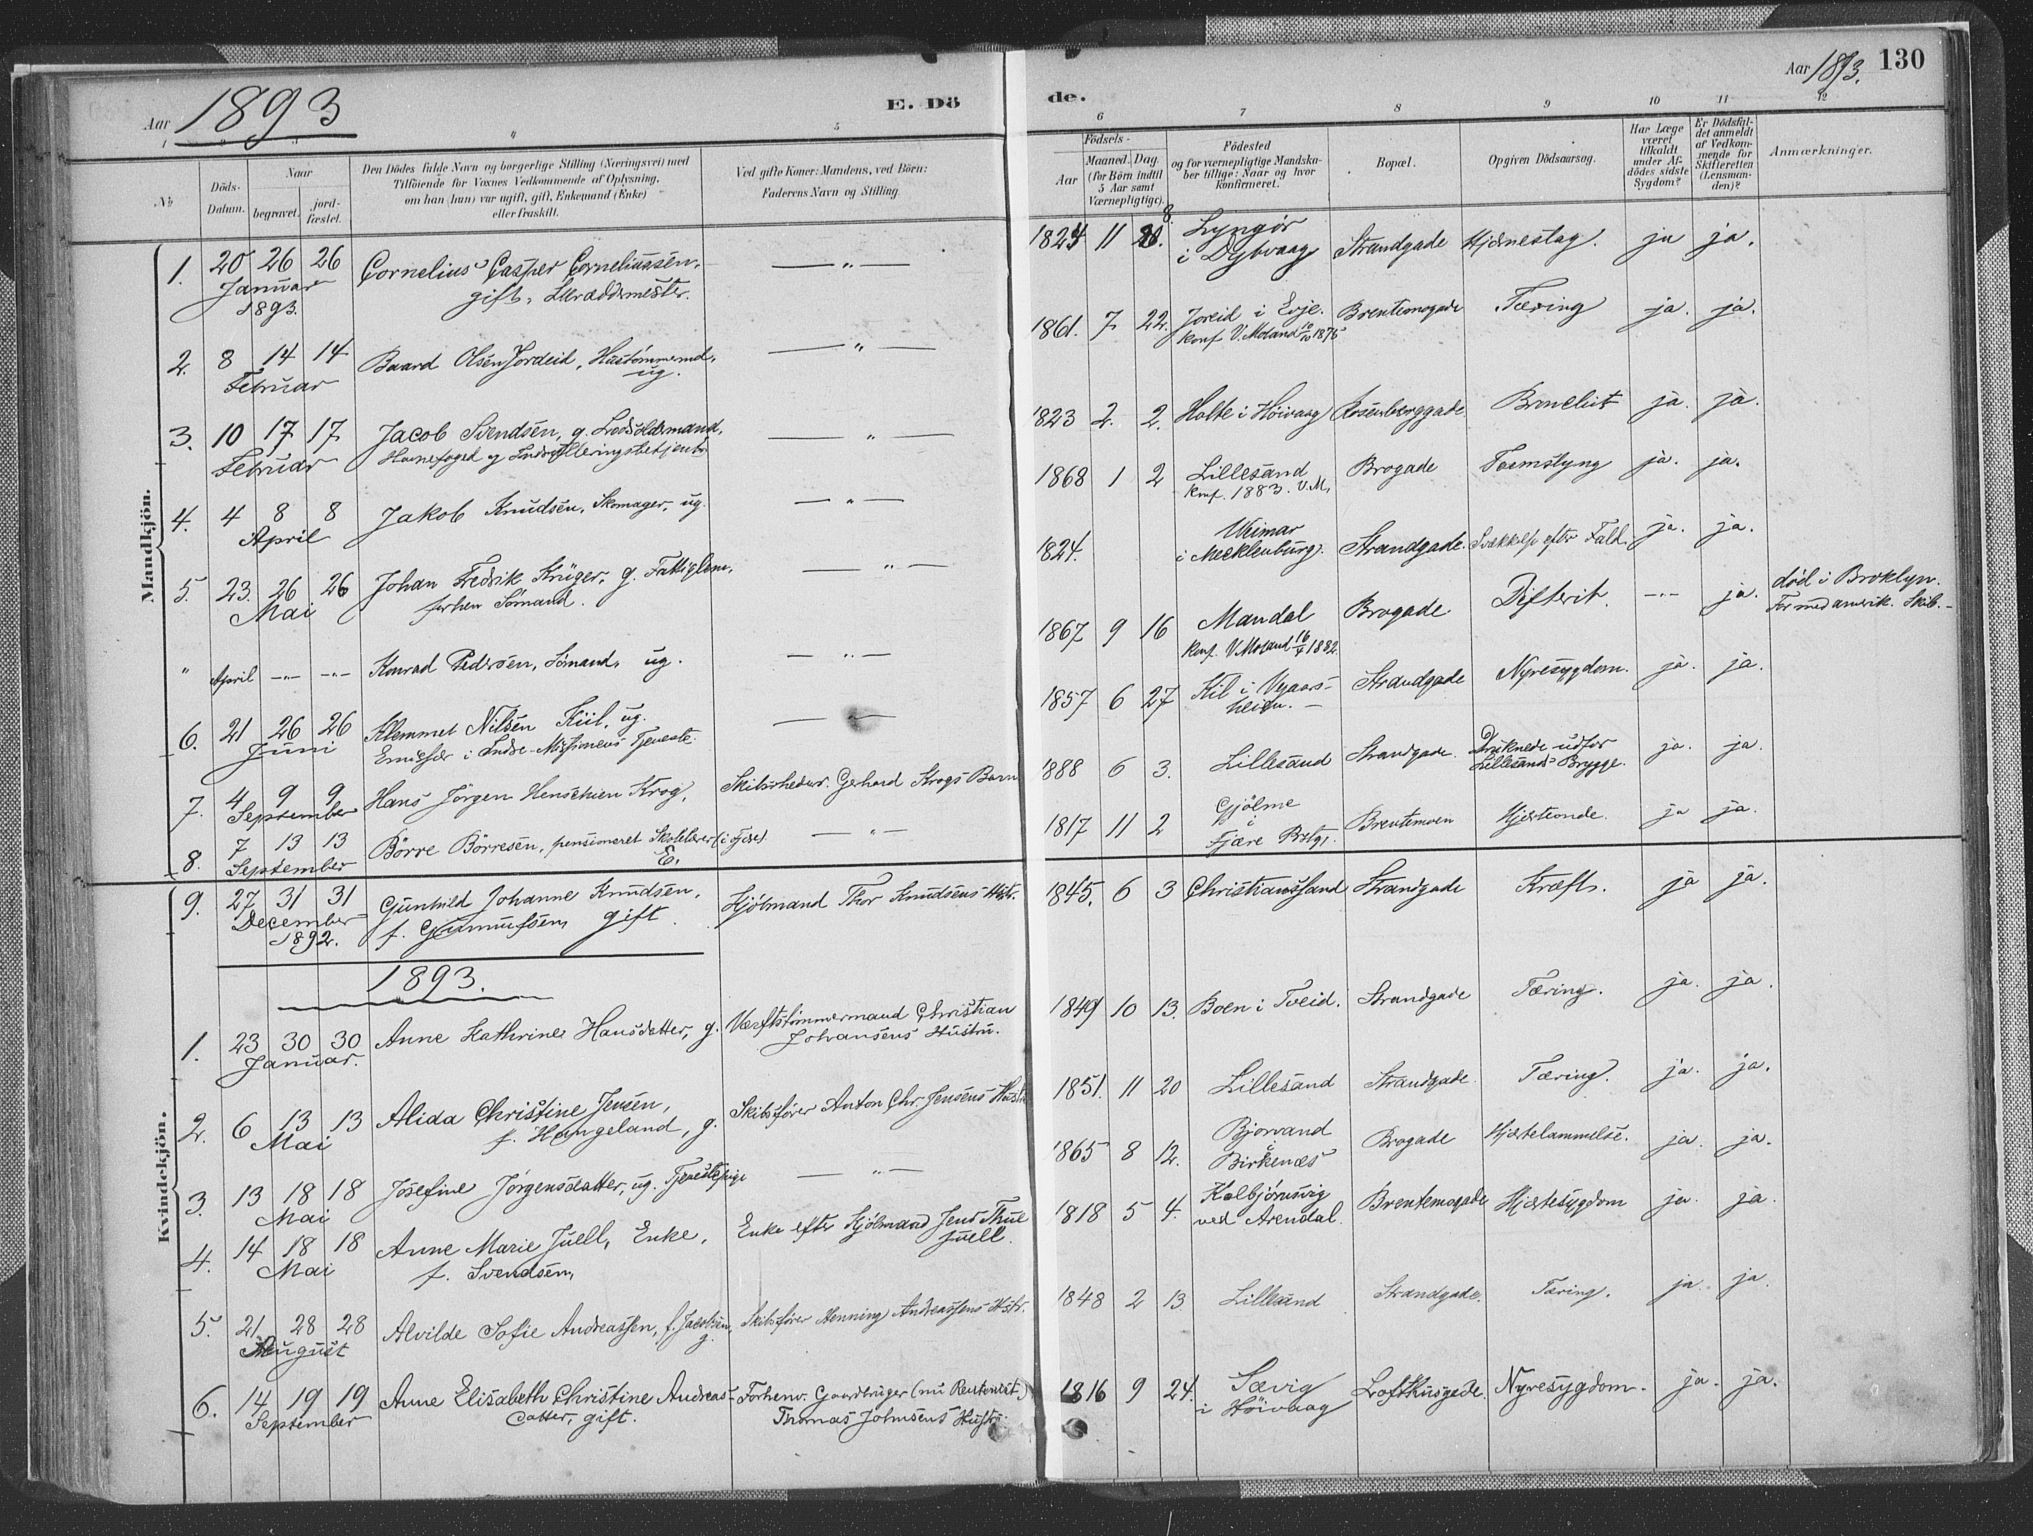 Aar 1893
E. Dö
de.
Aar 1893. 130
1 2 3 4 5 6 7 8 9 10 11 12
№
Döds-
Datum.
Naar
begravet.
jord-
fæstet.
Den Dödes fulde Navn og borgerlige Stilling (Næringsvei) med
Tilföiende for Voxnes Vedkommende af Oplysning,
om han (hun) var ugift, gift, Enkemand (Enke)
eller fraskilt.
Ved gifte Koner: Mandens, ved Börn:
Faderens Navn og Stilling.
Födsels-
Aar
Maaned. Dag.
(for Börn indtil
5 Aar samt
Værnepligtige).
Födested
og for værnepligtige Mandska-
ber tillige: Naar og hvor
konfirmeret.
Bopæl.
Opgiven Dödsaarsag.
Har Læge
været
tilkaldt
under Af-
dödes sidste
Sygdom?
Er Dödsfal-
det anmeldt
af Vedkom-
mende for
Skifteretten
(Lensman-
den)?
Anmærkninger.
Mandkjön.
1. 20 26 26 Cornelius Casper Corneliussen, — „ — 1824 11 8. Lyngör Strandgade Hjernestag. ja ja.
Januar gift, i Dybvaag
1893.
2. 8 14 14 Baard Olsen Jordeid, — „ — 1861. 7 22. Joreid i Evje. Brentemogade Tæring ja. ja.
Februar ug. konf V. Moland 1876
3. 10 17 17 Jacob Svendsen, g. — „ — 1823 2. 2. Holte i Höivaag Rosenberggade ja. ja.
Februar Havnefoged og
4. 4 8 8 Jakob Knudsen, Skomager, ug. — „ — 1868 1 2 Lillesand Brogade Tarmslyng ja. ja.
April konf. 1883. V.M.
5. 23. 26 26 Johan Fredrik Krüger, g. Fattiglem, — „ — 1824. Weimar Strandgade. Svækkelse efter Fald. ja. ja.
Mai forhen Sömand. i Mecklenburg.
„ April —„— —„— Konrad Pedersen, Sömand, ug. — „ — 1867 9 16 Mandal Brogade Difterit. —„— ja. död i Broklyn.
konf. V. Moland 1882 For med amerik. Skib.
6. 21 26 26 Klemmet Nilsen Kiil, ug. — „ — 1857 6 27 Kil i Vegaars- Strandgade Nyresygdom. ja. ja.
Juni Emissær i Indre-Missionens Tjeneste. heien.
7. 4 9 9 Hans Jörgen Henschien Krog, Skibsrheder Gerhard Krogs Barn 1888 6 3. Lillesand Strandgade. Druknede udfor ja. ja.
September Lillesands Brygge.
8. 7 13 13 Börre Börresen, pensioneret Skolelærer (i Fjære) — „ — 1817 11 2 Gjölme Brentemoen Hjerteonde. ja ja.
September E. i
Fjære Prstgj.
Kvindekjön.
9. 27 31 31 Gunhild Johanne Knudsen, Hjölmand Thor Knudsens Hstr. 1845. 6 3 Christianssand Strandgade Kræft. ja ja.
December gift
1892.
1893.
1. 23 30 30 Anne Kathrine Hansdatter, g. Værftstömmermand Christian 1849 10 13. Boen i Tveid. Strandgade Tæring. ja. ja.
Januar. Johansens Hustru.
2. 6 13 13 Alida Christine Jensen, Skibsförer Anton Chr. Jensens Hustr 1851. 11 20 Lillesand Strandgade. Tæring. ja. ja.
Mai f. Hangeland, g.
3. 13 18 18 Josefine Jörgensdatter, ug. Tjenestepige — „ — 1865 8 12. Bjorvand Brogade Hjertelammelse. ja. ja.
Mai i
Birkenæs
4. 14 18 18 Anne Marie Juell, Enke, Enke efter Hjölmand Jens Thue 1818 5 4. Kolbjörnsvig Brentemogade Hjertesygdom ja. ja.
Mai f. Svendsen, Juell. ved Arendal.
5. 21 28 28 Alvilde Sofie Andreassen, f. Jacobsen, Skibsförer Henning Andreassens Hstr. 1848 2 13 Lillesand Strandgade. Tæring. ja. ja.
August g.
6. 14 19 19 Anne Elisabeth Christine Andreas- Forhenv. Gaardbruger (nu Rentenist) 1816 9 24. Sævig Lofthusgade. Nyresygdom. ja. ja.
September datter, gift. Thomas Johnsens Hustr. i Höivaag